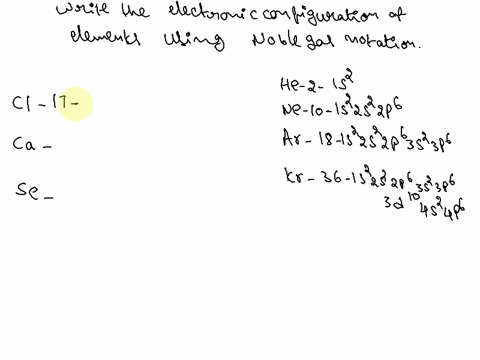 Write the electronic configuration of
elements using Noble gas notation.
He - 2 - 1s²
Cl - 17 -
Ne - 10 - 1s²2s²2p⁶
Ca -
Ar - 18 - 1s²2s²2p⁶3s²3p⁶
Se -
Kr - 36 - 1s²2s²2p⁶3s²3p⁶
3d¹⁰4s²4p⁶